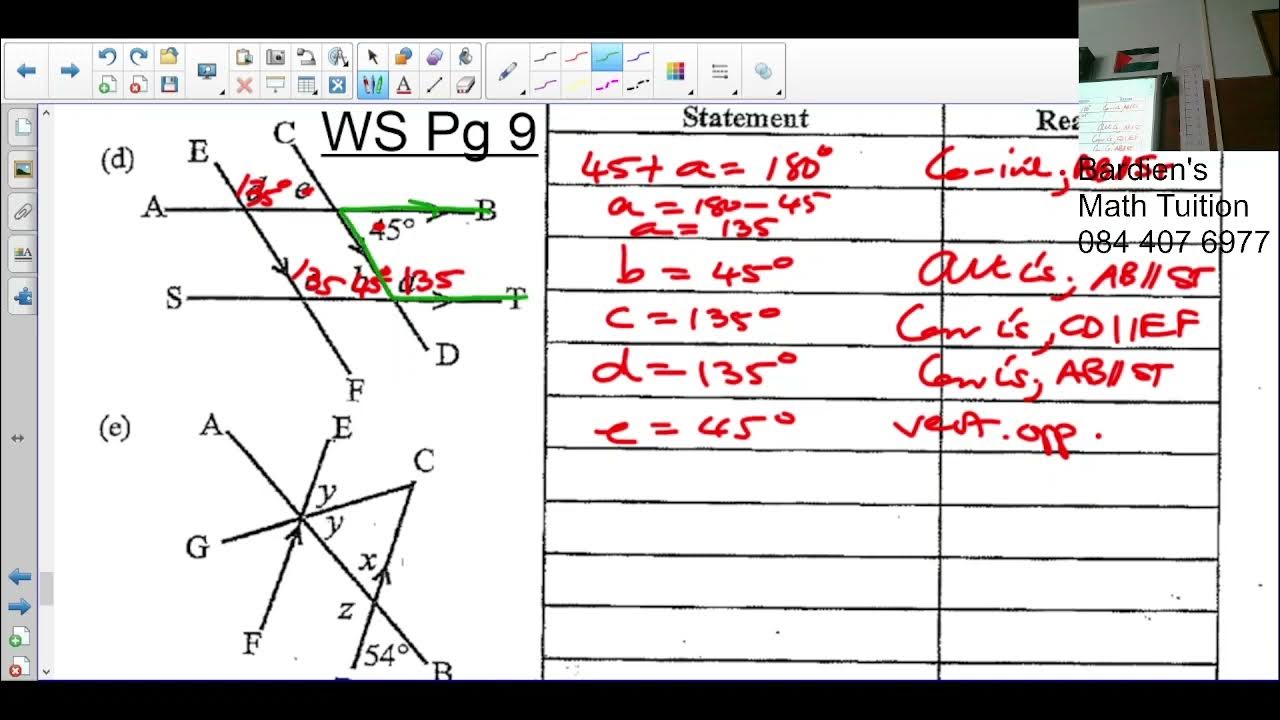 WS Pg 9
Statement
(d)
E
C
A
B
S
T
D
F
135°
45°
135
45°
135
45 + a = 180°
Co-int; AB//ST
a = 180 - 45
a = 135
b = 45°
Alt ∠'s; AB//ST
c = 135°
Corr ∠'s, CD//EF
d = 135°
Corr ∠'s; AB//ST
e = 45°
vert. opp.
(e)
A
E
C
y
y
G
x
z
F
54°
B
Bardien's
Math Tuition
084 407 6977